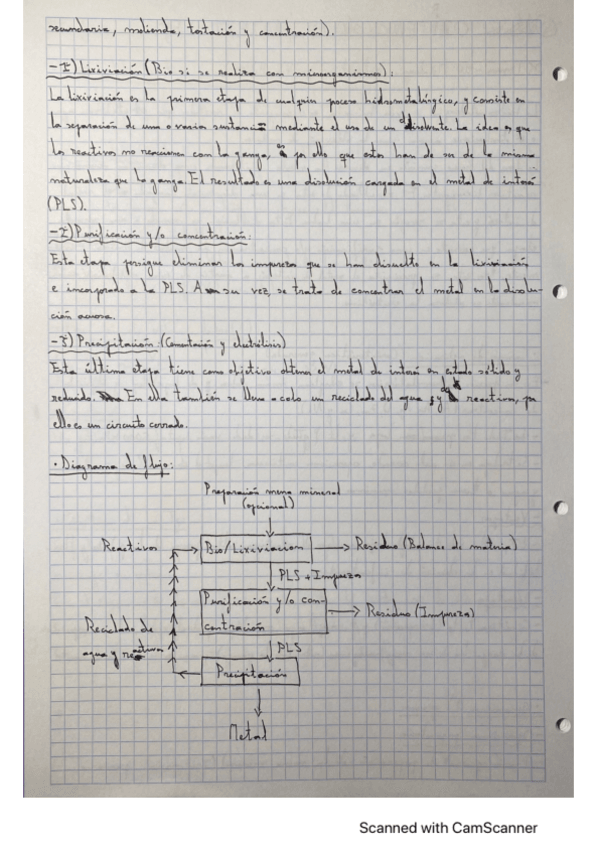 secundaria, molienda, tostación y concentración).
-1) Lixiviación (Bio si se realiza con microorganismos):
La lixiviación es la primera etapa de cualquier proceso hidrometalúrgico, y consiste en
la separación de una o varias sustancias mediante el uso de un disolvente. La idea es que
los reactivos no reaccionen con la ganga, es por ello que estos han de ser de la misma
naturaleza que la ganga. El resultado es una disolución cargada en el metal de interés
(PLS).
-2) Purificación y/o concentración:
Esta etapa persigue eliminar las impurezas que se han disuelto en la lixiviación
e incorporado a la PLS. A su vez, se trata de concentrar el metal en la disolu-
ción acuosa.
-3) Precipitación: (Cementación y electrólisis)
Esta última etapa tiene como objetivo obtener el metal de interés en estado sólido y
reducido. En ella también se lleva a cabo un reciclado del agua y de reactivos, por
ello es un circuito cerrado.
· Diagrama de flujo:
Preparación mena mineral
(opcional)
Reactivos
Bio/Lixiviación
Residuo (Balance de materia)
PLS + Impureza
Purificación y/o con-
centración
Residuo (Impureza)
Reciclado de
agua y reactivos
PLS
Precipitación
Metal
Scanned with CamScanner